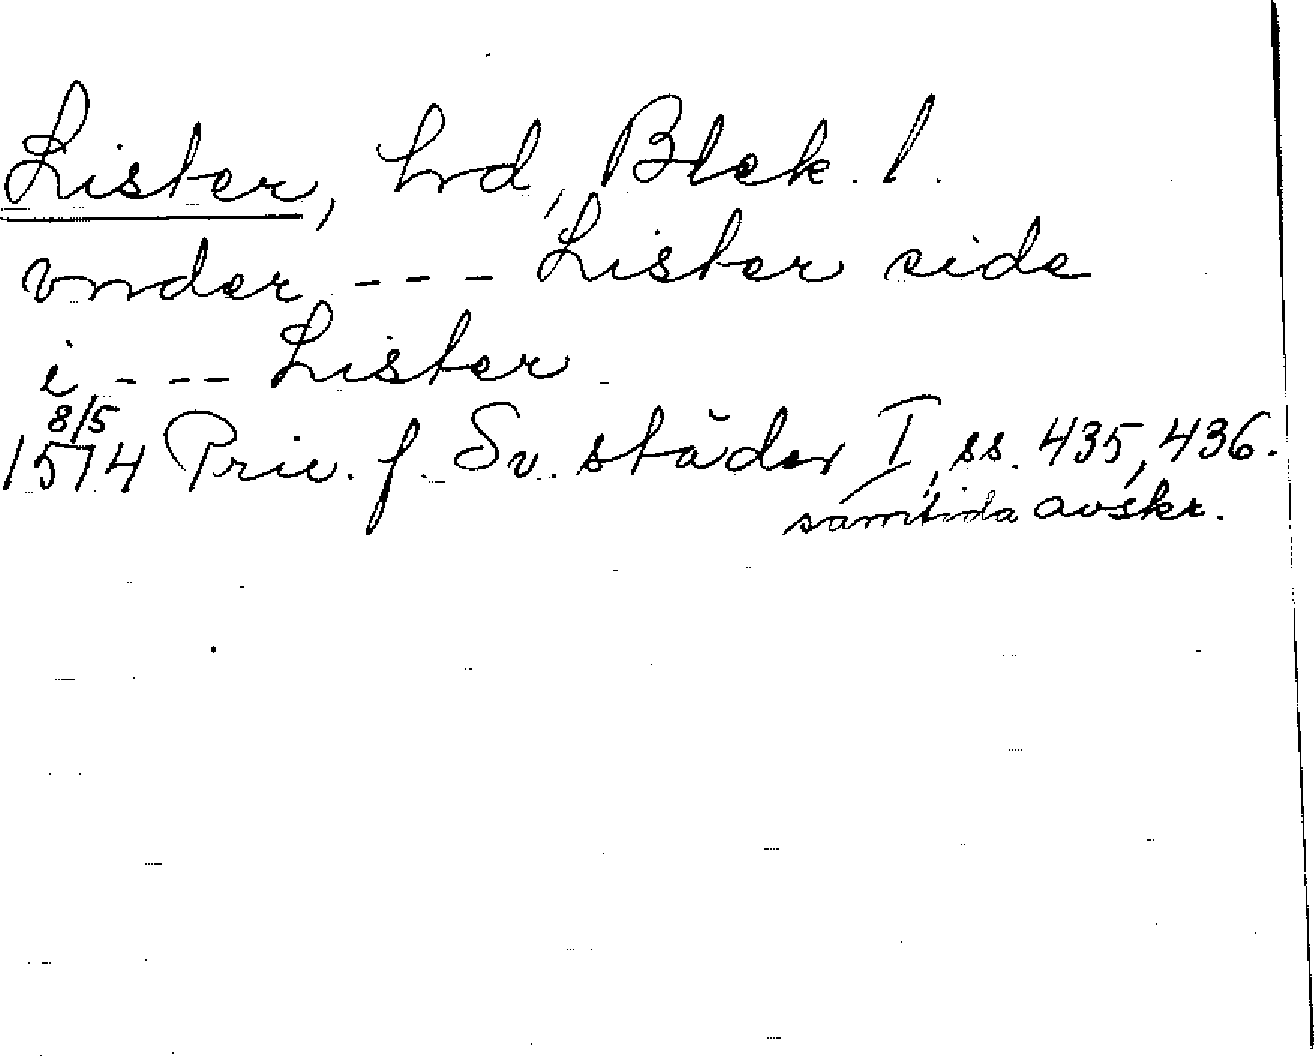 Lister, hrd, Blek. l.
vnder --- Lister side
i --- Lister
8/5
1574 Priv. f. Sv. städer I, ss. 435, 436.
samtida avskr.